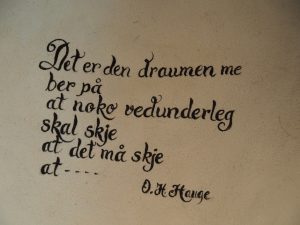 Det er den draumen me
ber på
at noko vedunderleg
skal skje
at det må skje
at ----
O. H. Hauge